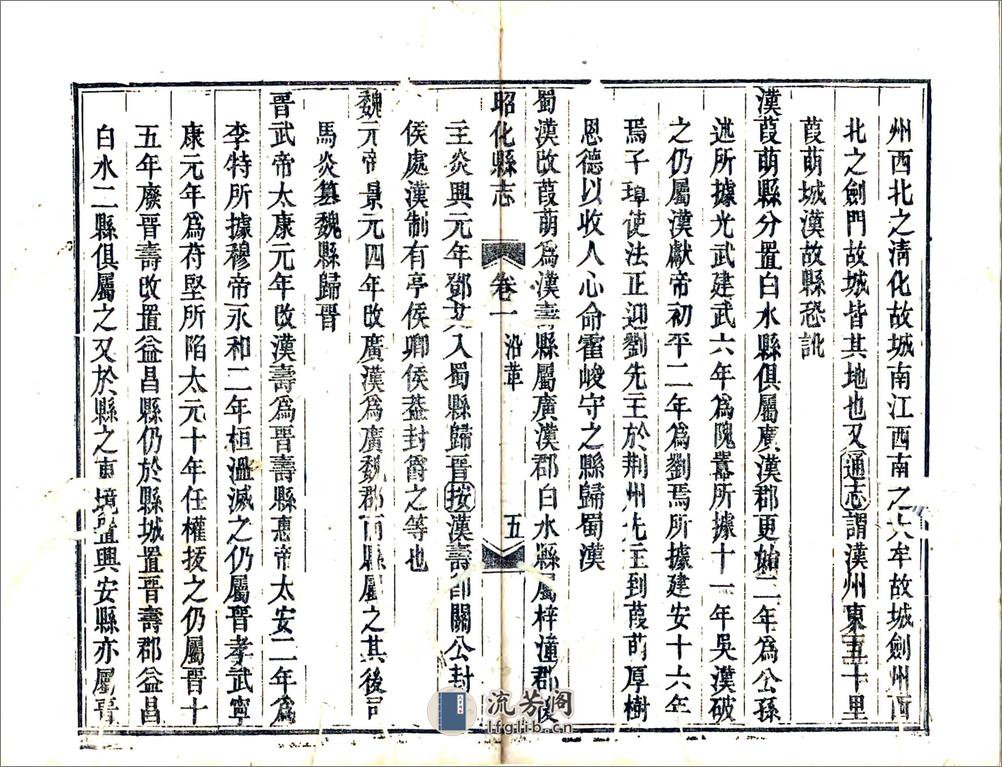 州西北之清化故城南江西南之大牟故城劍州西
北之劍門故城皆其地也又通志謂漢州東五十里
葭萌城漢故縣恐訛
漢葭萌縣分置白水縣俱屬廣漢郡更始二年爲公孫
述所據光武建武六年爲隗囂所據十一年吳漢破
之仍屬漢獻帝初平二年爲劉焉所據建安十六年
焉子璋使法正迎劉先主於荆州先主到葭萌厚樹
恩德以收人心命霍峻守之縣歸蜀漢
蜀漢改葭萌爲漢壽縣屬廣漢郡白水縣屬梓潼郡後
昭化縣志 卷一 沿革 五
主炎興元年鄧艾入蜀縣歸晉按漢壽卽關公封
侯處漢制有亭侯鄉侯蓋封爵之等也
魏元帝景元四年改廣漢爲廣魏郡而縣屬之其後司
馬炎篡魏縣歸晉
晉武帝太康元年改漢壽爲晉壽縣惠帝太安二年爲
李特所據穆帝永和二年桓溫滅之仍屬晉孝武寧
康元年爲苻堅所陷太元十年任權拔之仍屬晉十
五年廢晉壽改置益昌縣仍於縣城置晉壽郡益昌
白水二縣俱屬之又於縣之東境置興安縣亦屬晉
流芳阁
lfglib.cn